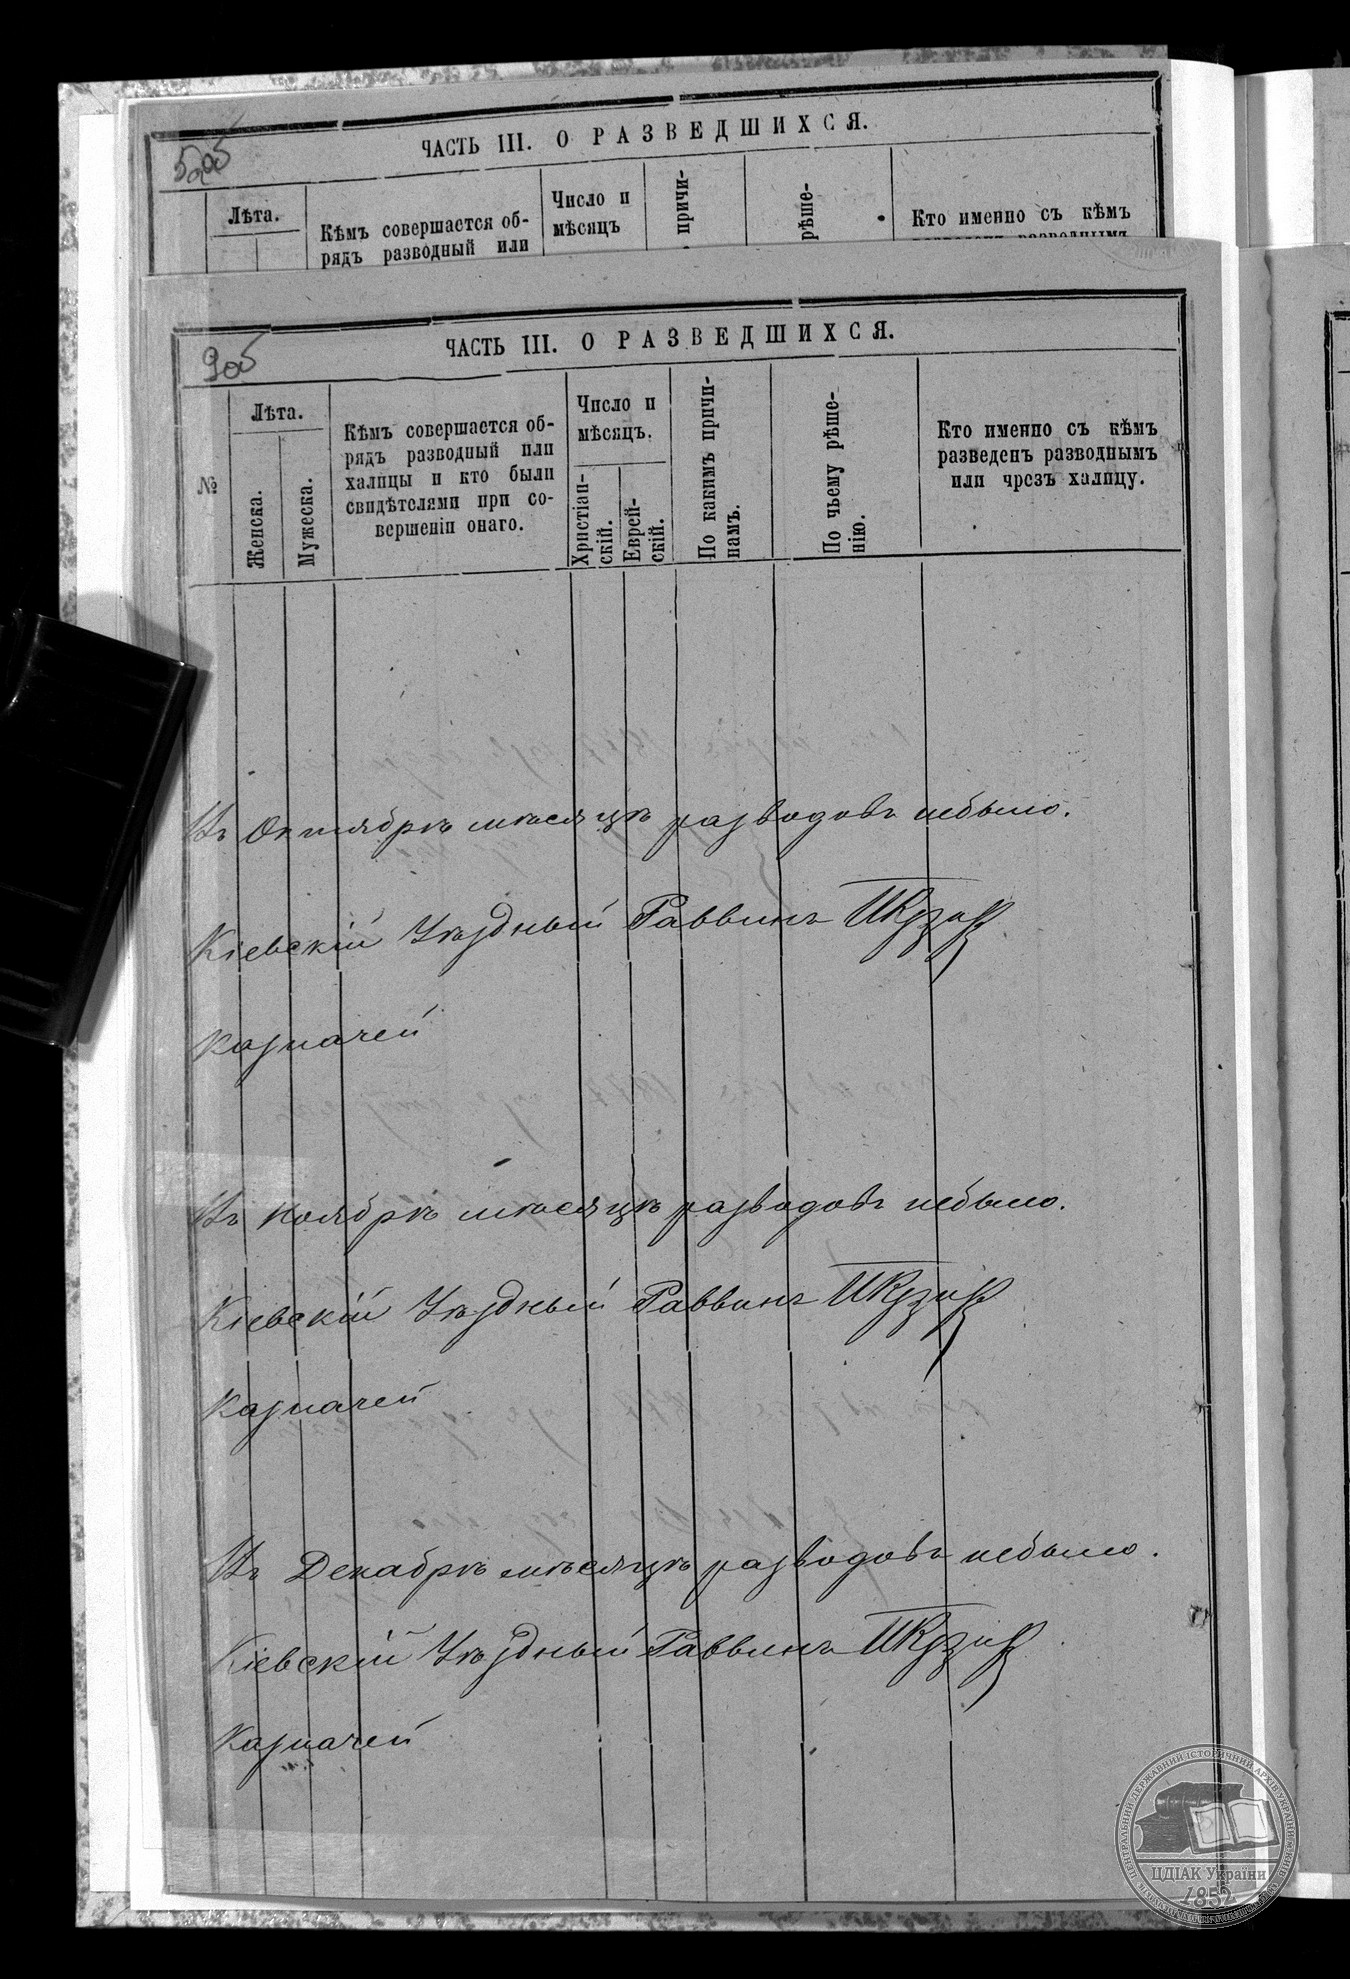 5об
ЧАСТЬ III. О РАЗВЕДШИХСЯ.
Лѣта.
Кѣмъ совершается об-
рядъ разводный или
Число и
мѣсяцъ
причи-
рѣше-
Кто именно съ кѣмъ
разведенъ разводнымъ
9об
ЧАСТЬ III. О РАЗВЕДШИХСЯ.
№
Лѣта.
Женска.
Мужеска.
Кѣмъ совершается об-
рядъ разводный или
халицы и кто были
свидѣтелями при со-
вершеніи онаго.
Число и
мѣсяцъ.
Христіан-
скій.
Еврей-
скій.
По какимъ причи-
намъ.
По чьему рѣше-
нію.
Кто именно съ кѣмъ
разведенъ разводнымъ
или чрезъ халицу.
Въ Октябрѣ мѣсяцѣ разводовъ небыло.
Кіевскій Уѣздный Раввинъ
Казначей
Въ Ноябрѣ мѣсяцѣ разводовъ небыло.
Кіевскій Уѣздный Раввинъ
Казначей
Въ Декабрѣ мѣсяцѣ разводовъ небыло.
Кіевскій Уѣздный Раввинъ
Казначей
ЦЕНТРАЛЬНИЙ ДЕРЖАВНИЙ ІСТОРИЧНИЙ АРХІВ УКРАЇНИ
ЦДІАК України
1852